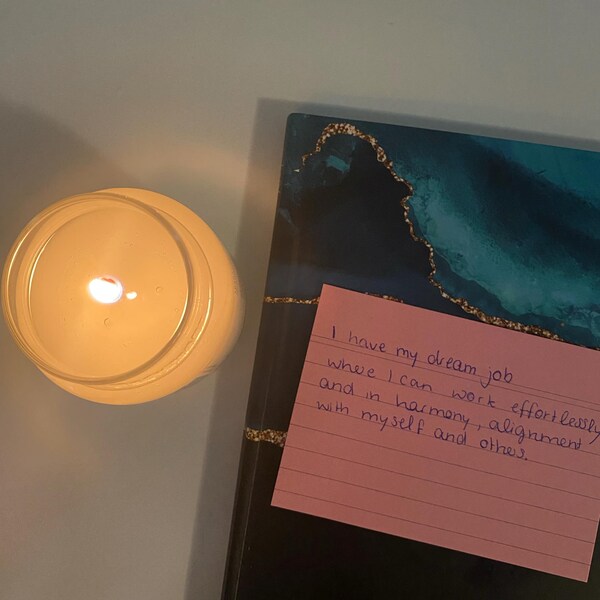 I have my dream job
where I can work effortlessly
and in harmony, alignment
with myself and others.